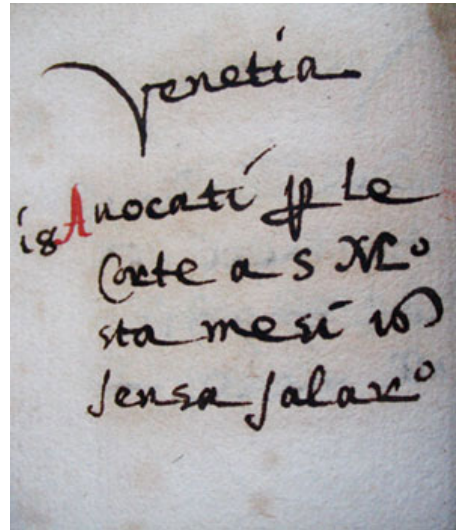 Venetia
18 Auocati ꝑ le
Corte a S M͞co
sta mesi 16
sensa salar°